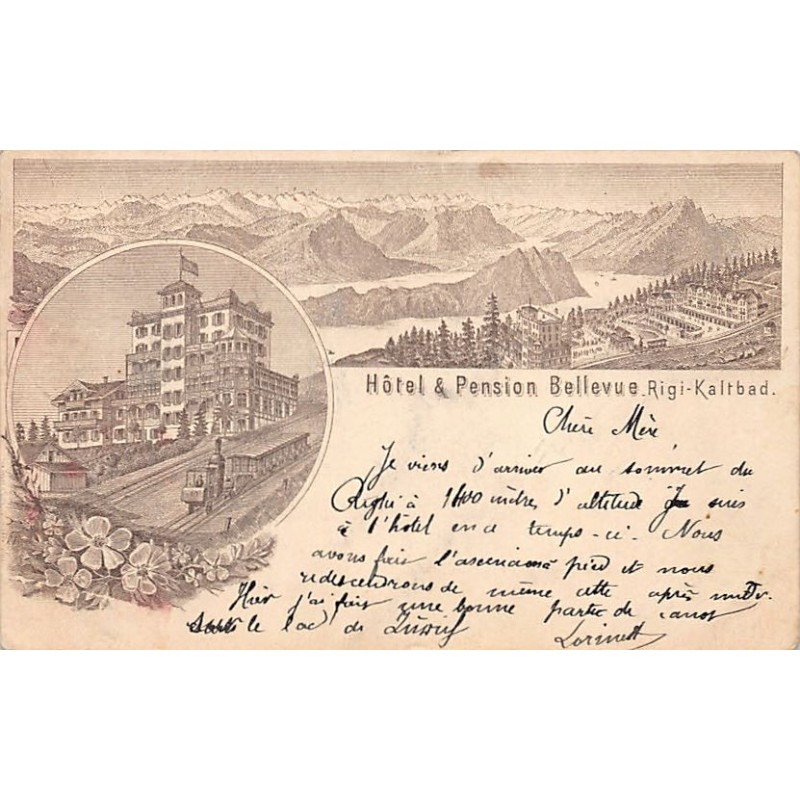 Hôtel & Pension Bellevue Rigi-Kaltbad.
Chère Mère
Je viens d'arriver au sommet du
Righi à 1800 mètres d'altitude Je suis
à l'hôtel en ce temps-ci. Nous
avons fait l'ascension à pied et nous
redescendrons de même cette après midi.
Hier j'ai fait une bonne partie de canot
le lac de